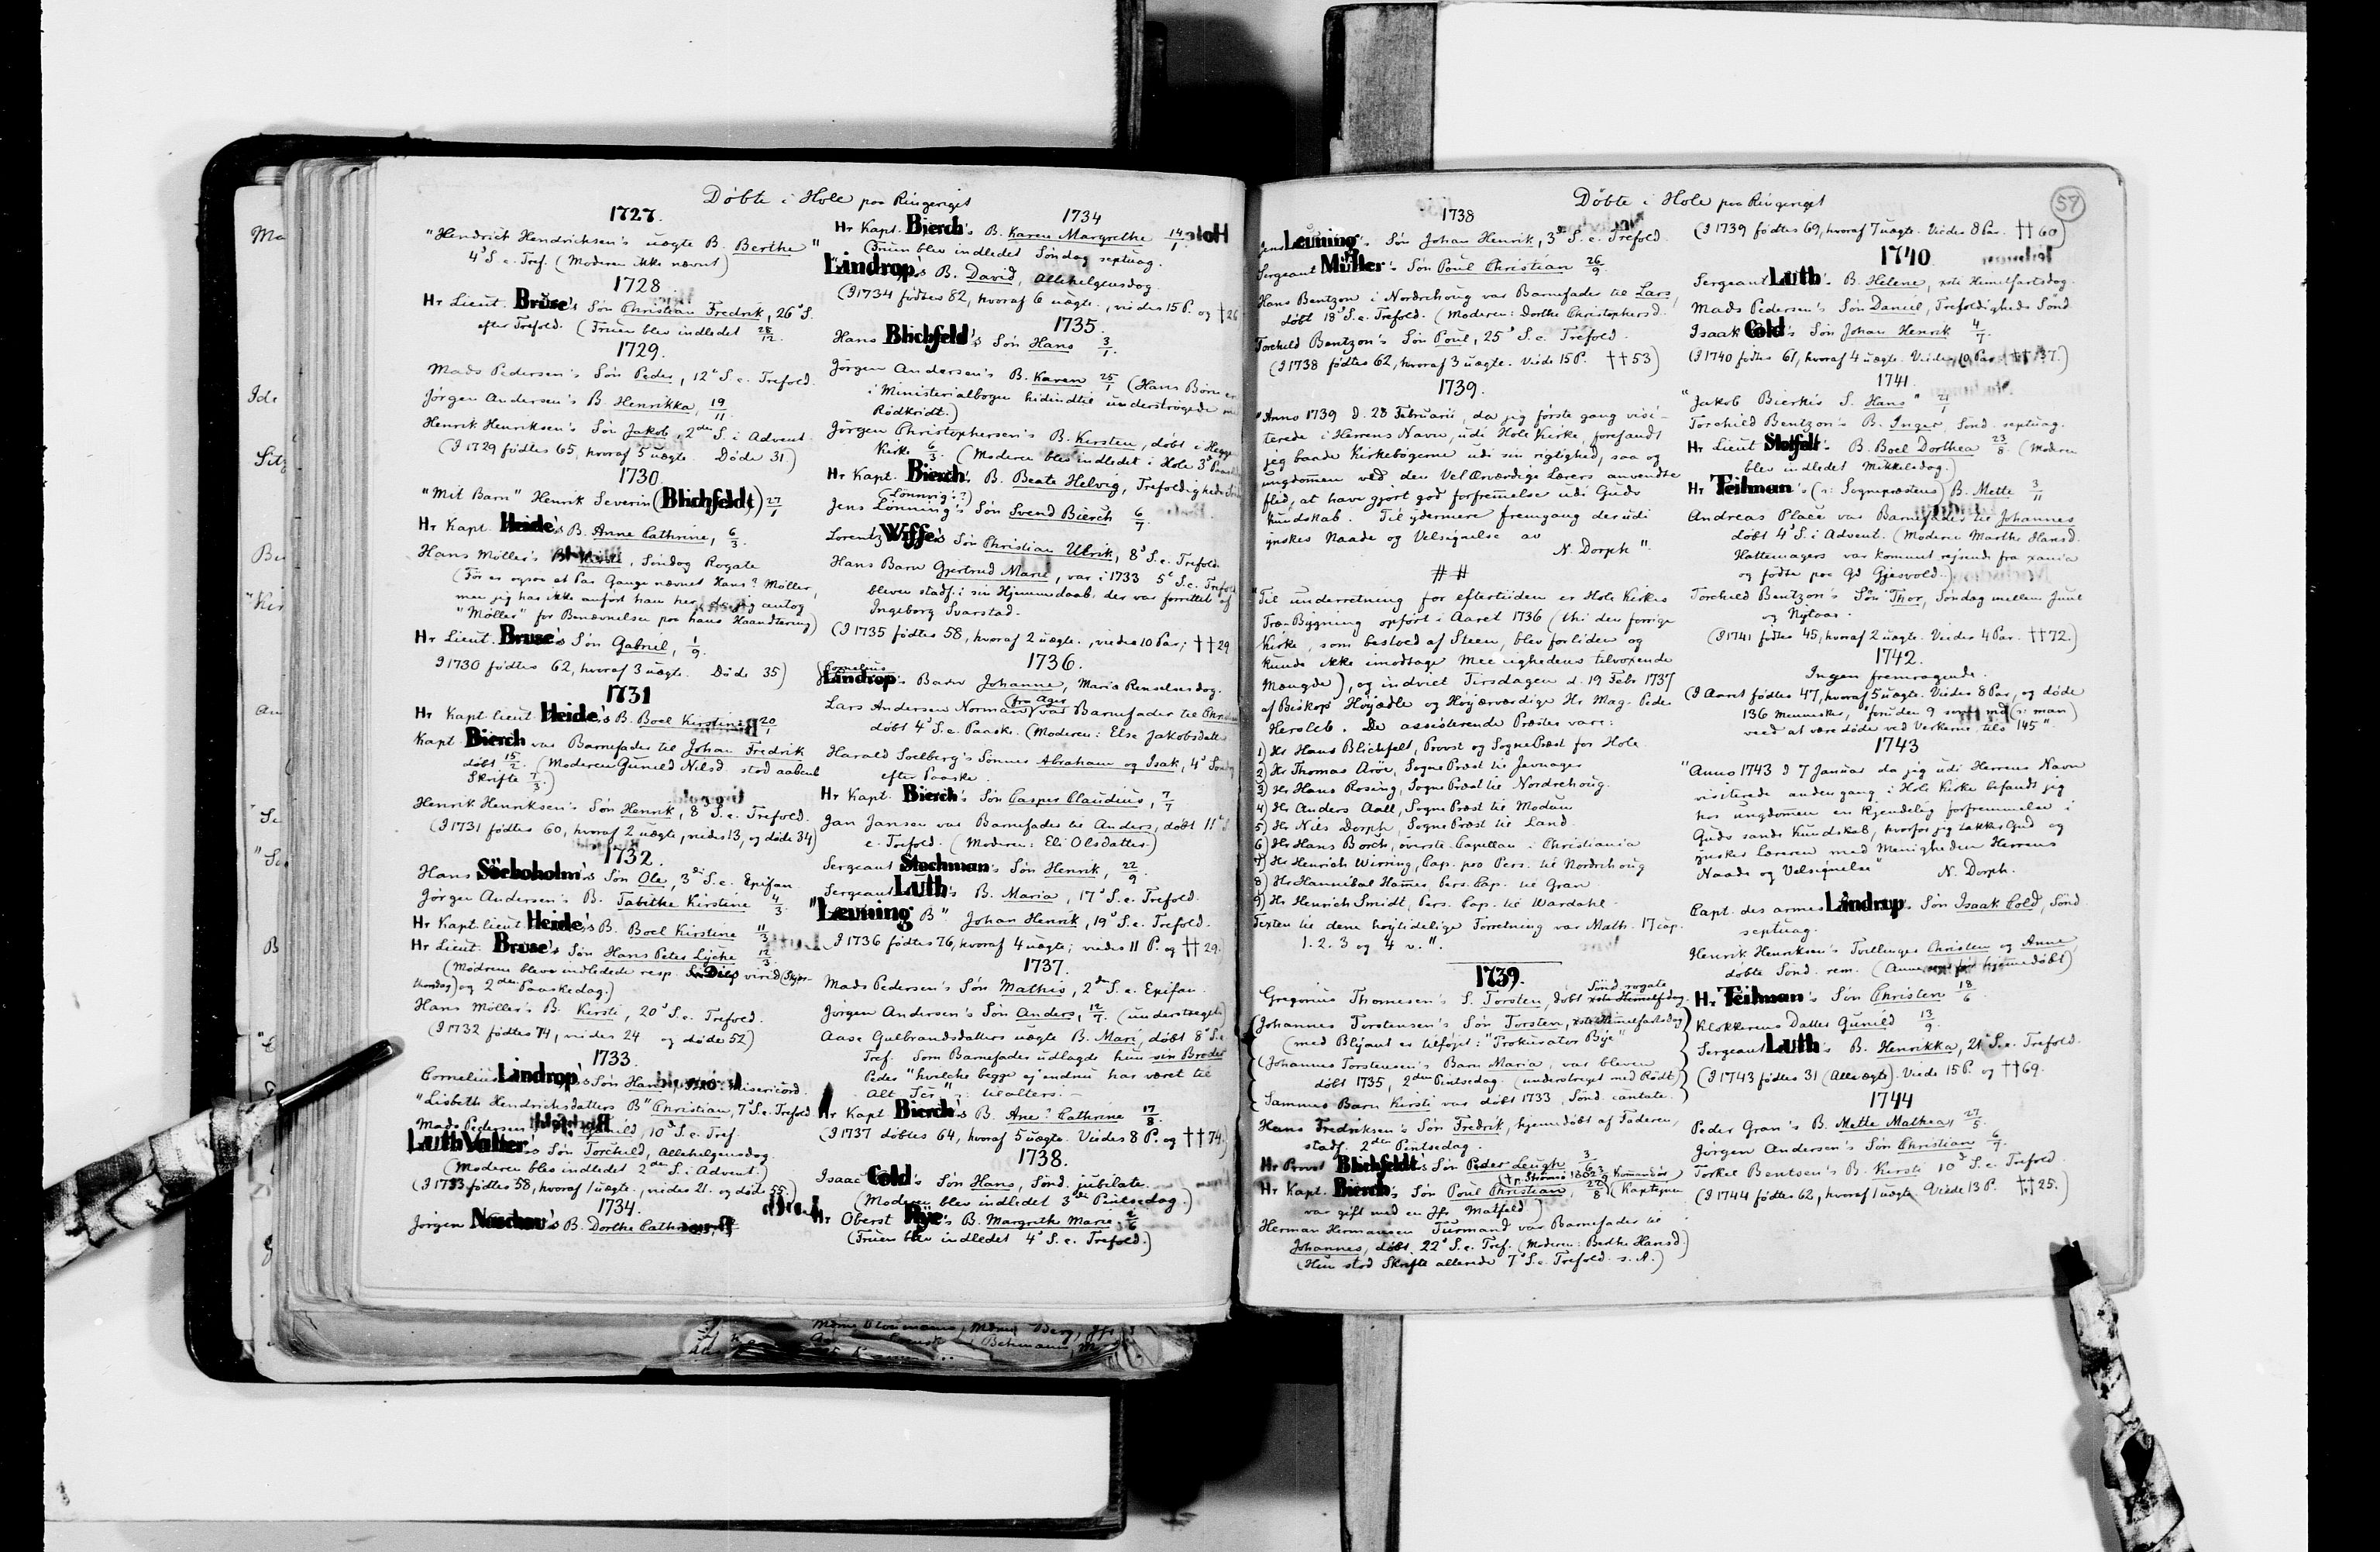 Døbte i Hole paa Ringeriget
1727.
"Hendrick Hendricksen's uægte B. Berthe"
4d S. e. Tref. (Moderen ikke nævnt)
1728
Hr Lieut. Bruse's Søn Christian Fredrik, 26d S.
efter Trefold. (Fruen blev indledet 28/12
1729.
Mads Pedersen's Søn Peder, 12d S. e. Trefold.
Jørgen Andersen's B. Henrikka, 19/11
Henrik Henriksen's Søn Jakob, 2den S. i Advent.
(I 1729 fødtes 65, hvoraf 5 uægte. Døde 31.)
1730
"Mit Barn" Henrik Severin (Blichfeldt) 27/1
Hr Kapt. Heide's B. Anne Cathrine, 6/3.
Hans Møller's B. Kirsti, Søndag Rogate
(Før er ogsaa et Par Gange nævnt Hans? Møller,
men jeg har ikke anført ham her, da jeg antog
"Møller" for Benævnelsen paa hans Haandtering)
Hr Lieut. Bruse's Søn Gabriel, 1/9.
I 1730 fødtes 62, hvoraf 3 uægte. Døde 35)
1731
Hr Kapt. lieut. Heide's B. Boel Kirstine 20/1
Kapt. Bierch var Barnefader til Johan Fredrik
døbt 15/2. (Moderen Gunild Nilsd. stod aabenb.
Skrifte 7/3)
Henrik Henriksen's Søn Henrik, 8d S. e. Trefold.
(I 1731 fødtes 60, hvoraf 2 uægte, vides 13, og døde 34)
1732.
Hans Söeboholm's Søn Ole, 3die S. e. Epifan.
Jørgen Andersen's B. Tabithe Kirstine 4/3.
Hr Kapt. lieut. Heide's B. Boel Kirstine 11/3
Hr Lieut. Bruse's Søn Hans Peter Lyche 12/3
(Mødrene bleve indledede resp. Dies virid (Skjær-
thorsdag) og 2den Paaskedag.)
Hans Møller's B. Kirsti, 20d S. e. Trefold.
(I 1732 fødtes 74, vides 24 og døde 52)
1733.
Cornelius Lindrop's Søn Hans, misericord.
"Lisbeth Hendrichsdatters B" Christian, 7d S. e. Trefold
Mads Pedersen Gunild, 10d S. e. Tref.
Luth Valter's Søn Torchild, Allehelgensdag.
(Moderen blev indledet 2den S. i Advent.)
(I 1733 fødtes 58, hvoraf 1 uægte, vides 21. og døde 55.)
1734.
Jørgen Naschou's B. Dorthe Cath
1734
Hr Kapt. Bierch's B. Karen Margrethe 14/1
(Fruen blev indledet Søndag septuag.
Lindrop's B. David, Allehelgensdag.
(I 1734 fødtes 82, hvoraf 6 uægte, vides 15 P. og † 26
1735.
Hans Blichfeld's Søn Hans 3/1.
Jørgen Andersen's B. Karen 25/1 (Hans Børn er
i Ministerialbogen hidindtil understrøgede med
Rødkridt.)
Jørgen Christophersen's B. Kirsten, døbt i Hegge
Kirke 6/3. (Moderen blev indledet i Hole 3d
Hr Kapt. Bierch's B. Beate Helvig, Trefoldigheds
(Lønnvig's?)
Jens Lønning's Søn Svend Bierch 6/7
Lorentz Wiffe's Søn Christian Ulrik, 8d S. e. Trefold.
Hans Barn Gjertrud Marie, var i 1733 5d S. e. Trefold
bleven stadf. i sin Hjemmedaab, der var forrettet af
Ingeborg Svarstad.
(I 1735 fødtes 58, hvoraf 2 uægte, vides 10 Par, †† 29
1736.
(Cornelius
Lindrop's Barn Johanne, Mariæ Renselsesdag.
Lars Andersen Norman (fra Ager) var Barnefader til
døbt 4d S. e. Paaske. (Moderen: Else Jakobsdatter
Harald Soelberg's Sønner Abraham og Isak, 4d Søndag
efter Paaske.
Hr Kapt. Bierch's Søn Casper Claudius, 7/7
Jan Jansen var Barnefader til Anders, døbt 11d S
e. Trefold. (Moderen: Eli Olsdatter)
Sergeant Stochman's Søn Henrik, 22/9
Sergeant Luth's B. Maria, 17d S. e. Trefold.
"Levning B" Johan Henrik, 19d S. e. Trefold.
I 1736 fødtes 76, hvoraf 4 uægte; vides 11 P. og †† 29.
1737.
Mads Pedersen's Søn Mathis, 2den S. e. Epifan.
Jørgen Andersen's Søn Anders, 12/7. (understreget)
Aase Gulbrandsdatters uægte B. Mari, døbt 8d S. e
Tref. Som Barnefader udlagde hun sin Broder
Peder "hvilche begge ej endnu har været til
Alt Ter" ɔ: til alters.
Hr Kapt. Bierch's B. Ane? Cathrine 17/8.
(I 1737 døbtes 64, hvoraf 5 uægte. Vides 8 P. og †† 74.)
1738.
Isaac Cold's Søn Hans, Sønd. jubilate.
(Moderen blev indledet 3die Pintsedag.)
Hr Oberst Rÿe's B. Margreth Marie 2/6
(Fruen blev indledet 4d S. e. Trefold.)
Døbte i Hole paa Ringeriget
57
1738
Jens Levning's Søn Johan Henrik, 3d S. e. Trefold.
Sergeant Müller's Søn Poul Christian 26/9.
Hans Bentzon i Nordrehoug var Barnefader til Lars,
døbt 18d S. e. Trefold. (Moderen: Dorthe Christophersd.
Torchild Bentzon's Søn Poul, 25d S. e. Trefold.
(I 1738 fødtes 62, hvoraf 3 uægte. Viede 15 P. †† 53)
1739.
"Anno 1739 d. 28 Februarii, da jeg første gang visi-
terede i Herrens Navn, udi Hole Kirke, forefandt
jeg baade Kirkebøgerne udi sin rigtighed, saa og
ungdommen ved den Vel Ærværdige Lærers anvendte
flid, at have gjort god forfremmelse udi Guds
kundskab. Til ydermere fremgang derudi
ynskes Naade og Velsignelse av
N. Dorph".
# #
"Til underretning for eftertiiden er Hole Kirkes
Træ-Bygning opført i Aaret 1736 (thi den forrige
Kirke, som bestoed af Steen, blev forliden og
kunde ikke imodtage Meenighedens tilvoxende
Mængde), og indviet Tirsdagen d. 19 Febr 1737
af Biskop Höyædle og Höyærværdige Hr Mag. Peder
Hersleb. De assisterende Præster vare:
1) Hr Hans Blichfelt, Provst og Sogne Præst for Hole
2) Hr Thomas Arøe, Sogne Præst til Jevnager
3) Hr Hans Rosing, Sogne Præst til Nordrehoug.
4) Hr Anders Aall, Sogne Præst til Modum
5) Hr Niels Dorph, Sogne Præst til Land.
6) Hr Hans Borch, øverste Capellan i Christiania
7) Hr Henrich Wirring, Cap. pro Pers. til Nordrehoug
8) Hr Hannibal Hammer, Pers. Cap. til Gran
9) Hr Henrich Smidt, Pers. Cap. til Wardahl.
Texten til denne høytidelige Forretning var Math. 17 cap.
1. 2. 3 og 4 v.".
1739.
Gregorius Thomesen's S. Torsten, døbt Sønd rogate
(Johannes Torstensen's Søn Torsten,
(med Blyant er tilføjet: "Prokurator Bye"
(Johannes Torstensen's Barn Maria, var bleven
døbt 1735, 2den Pintsedag. (understreget med Rødt)
(Sammes Barn Kirsti var døbt 1733, Sønd. cantate.
Hans Fredriksen's Søn Fredrik, hjemmedøbt af Faderen,
stadf. 2den Pintsedag.
Hr Provst Blichfeldt's Søn Peder Leugh 3/6
Hr Kapt. Bierch's Søn Poul Christian, 27/8 (Kaptejnen
var gift med en Jfr Matfeld)
Herman Hermansen Turmand var Barnefader til
Johannes, døbt 22d S. e. Tref. (Moderen: Berthe Hansd.)
(Hun stod Skrifte allerede 7d S. e. Trefold. s. A.)
(I 1739 fødtes 69, hvoraf 7 uægte. Viedes 8 Par. †† 60)
1740
Sergeant Luth's B. Helene, xsti Himmelfartsdag.
Mads Pedersen's Søn Daniel, Trefoldigheds Sønd
Isaak Cold's Søn Johan Henrik 4/7.
(I 1740 fødtes 61, hvoraf 4 uægte. Viedes 10 Par. †† 37.)
1741.
"Jakob Bierkes S. Hans"
Torchild Bentzon's B. Inger, Sønd. septuag.
Hr Lieut Slotfelt's B. Boel Dorthea 23/8 (Moderen
blev indledet Mikkelsdag.)
Hr Teilman's (ɔ: Sognepræstens) B. Mette 3/11
Andreas Place var Barnefader til Johannes
døbt 4d S. i Advent. (Moderen Marthe Hansd.
Hattemagers var kommet rejsende fra xania
og fødte paa Gd Gjesvold.)
Torchild Bentzon's Søn Thor, Søndag mellem Juul
og Nytaar.
(I 1741 fødtes 45, hvoraf 2 uægte. Viedes 4 Par. †† 72.)
1742.
Ingen fremragende.
(I Aaret fødtes 47, hvoraf 5 uægte. Viedes 8 Par, og døde
136 mennesker, "foruden 9 som mand (ɔ: man)
veed at være døde ved Verkerne, tils 145".
1743
"Anno 1743 d 7 Januar da jeg udi Herrens Navn
visiterede anden gang i Hole Kirke befandt jeg
hos ungdommen en kjendelig forfremmelse i
Guds sande Kundskab, hvorfor jeg takker Gud og
ynsker Læreren med Menigheden Herrens
Naade og Velsignelse" N. Dorph.
Capt. des armes Lindrup's Søn Isaak Cold, Sønd.
septuag.
Henrik Henriksen's Tvillinger Christen og Anne,
døbte Sønd. rem. (Anne hjemmedøbt)
Hr Teilman's Søn Christen 18/6.
Klokkerens Datter Gunild 13/9.
Sergeant Luth's B. Henrikka, 21 S. e. Trefold.
(I 1743 fødtes 31 (Alle ægte). Viede 15 P. og †† 69.
1744
Peder Gran's B. Mette Mathea, 27/5.
Jørgen Andersen's Søn Christian 6/7.
Torkel Bentsen's B. Kirsti 10d S. e. Trefold
(I 1744 fødtes 62, hvoraf 1 uægte. Viede 13 P. †† 25.)